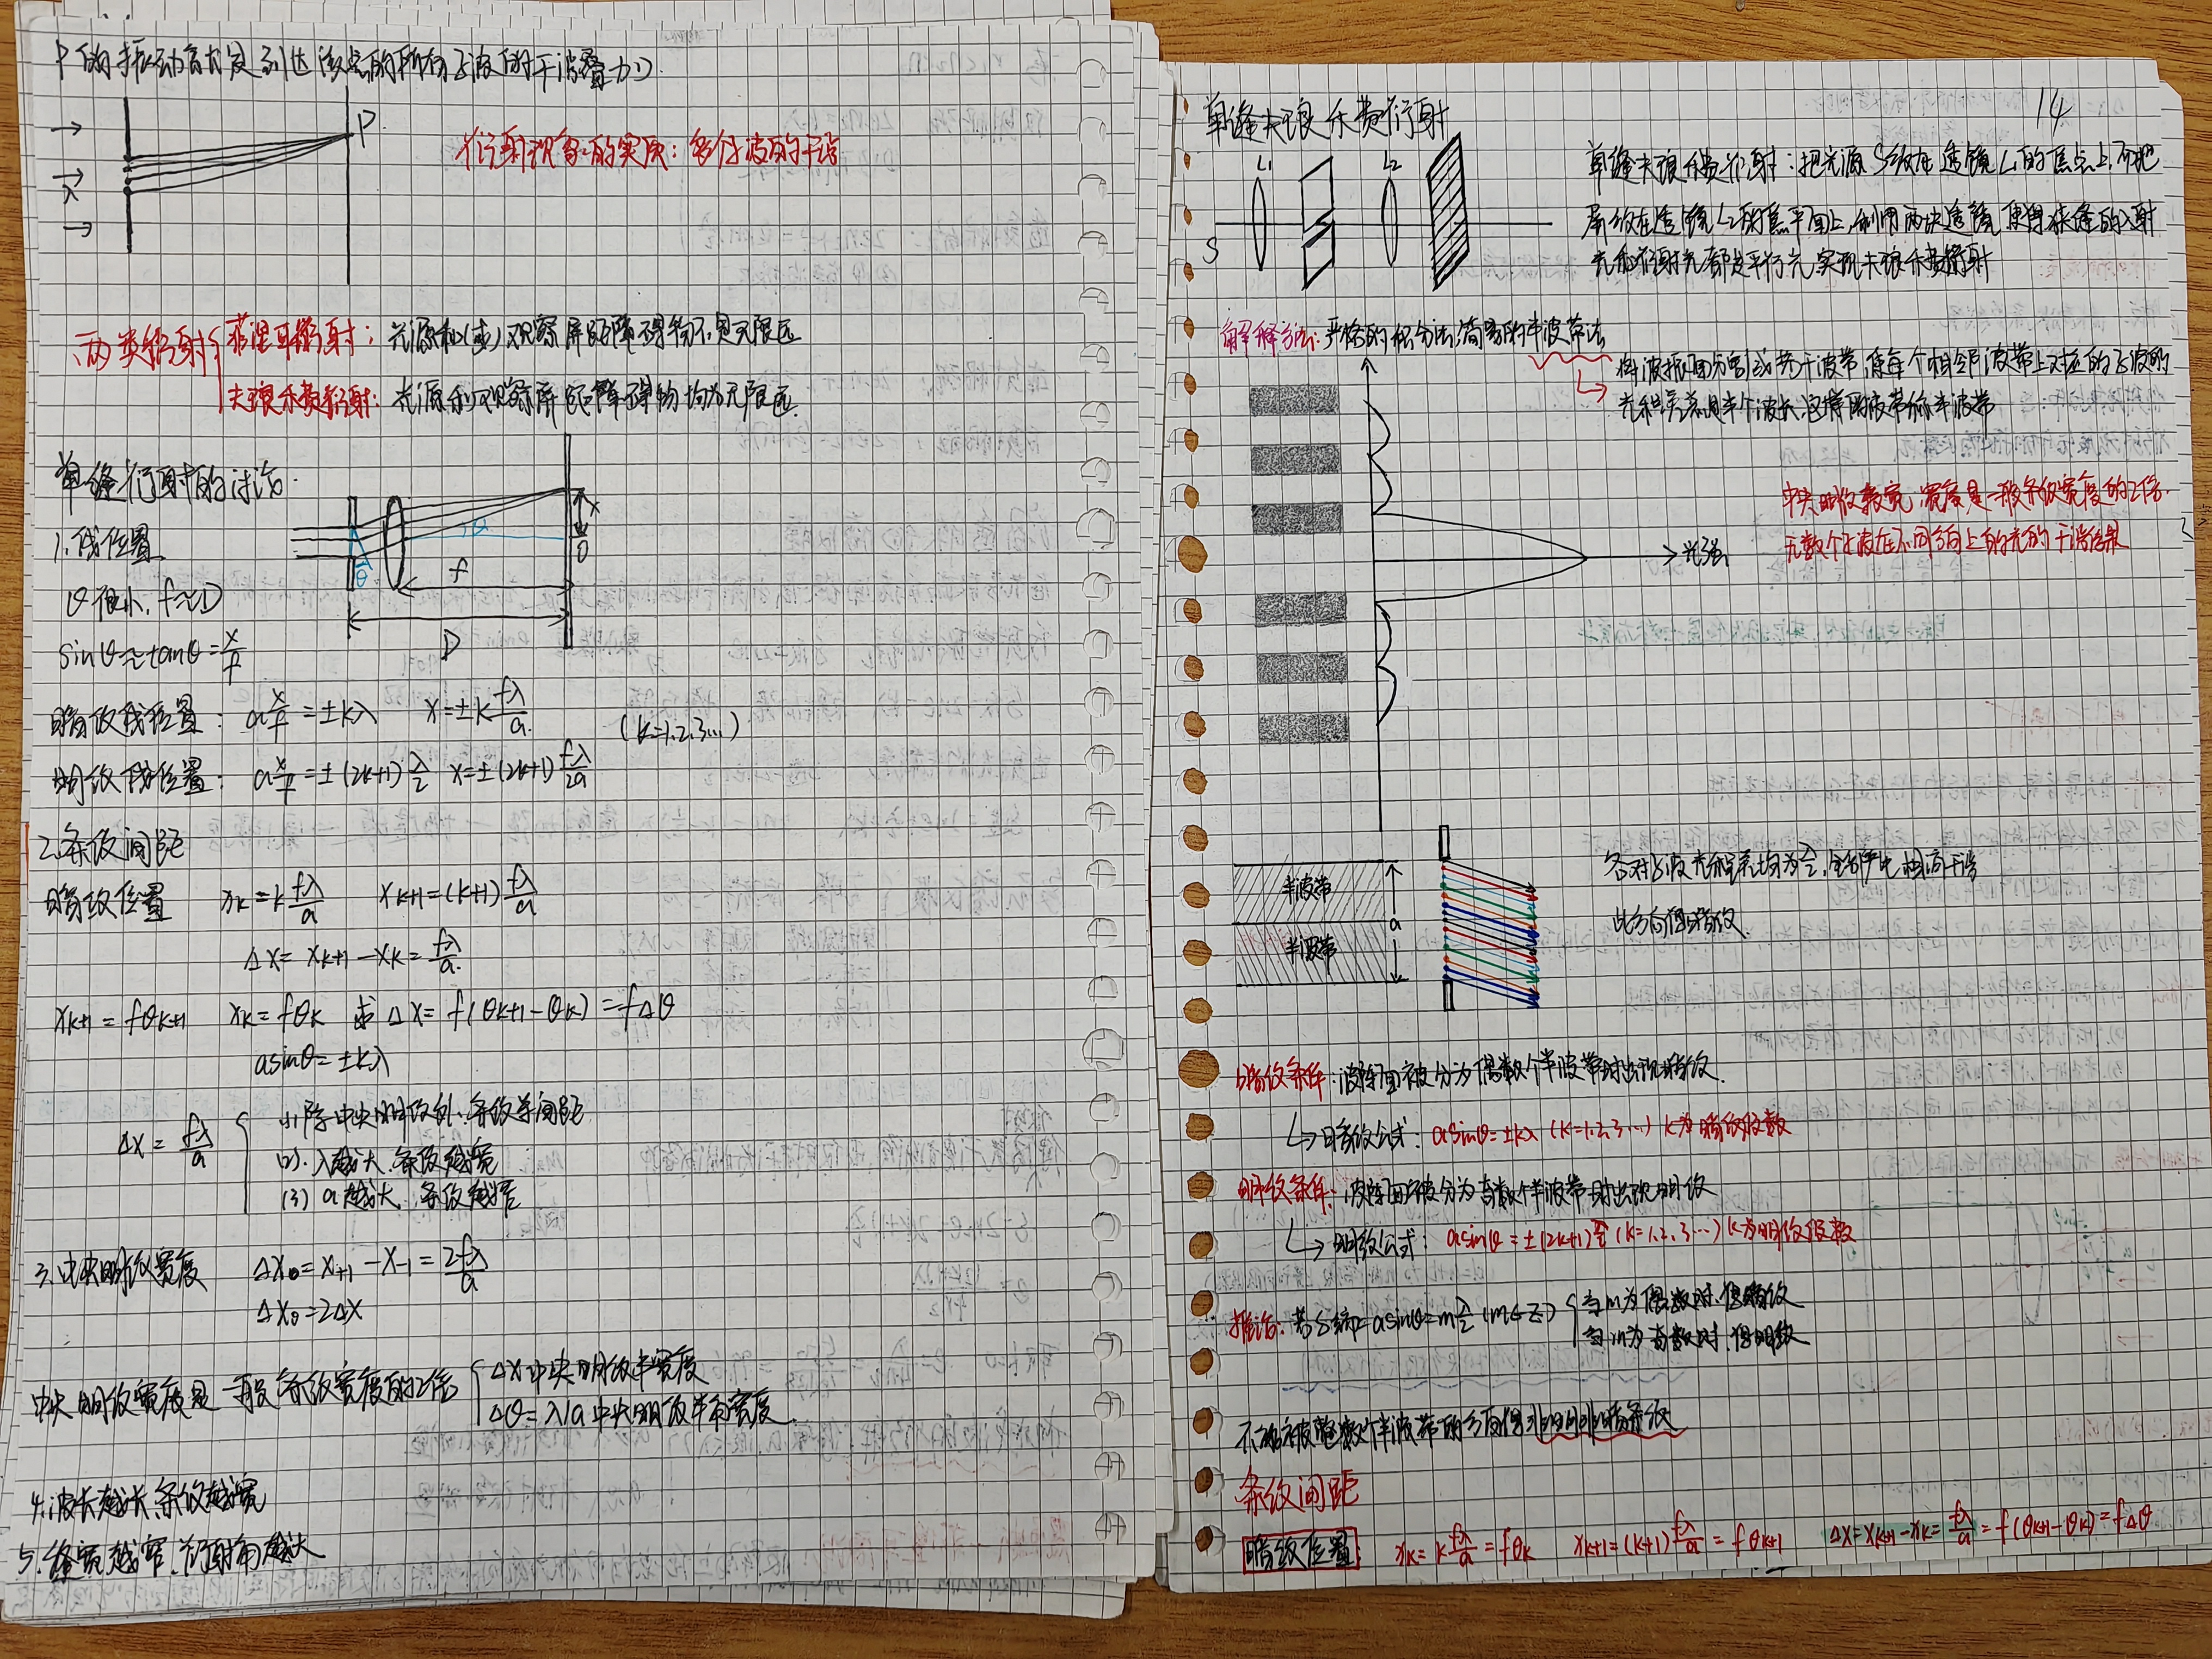 P的振动合力是到达该点的所有子波的干涉叠加
P
λ
衍射现象的实质：多个子波的干涉
两类衍射
菲涅耳衍射：光源和(或)观察屏距障碍物不是无限远
夫琅禾费衍射：光源和观察屏距障碍物均为无限远.
单缝衍射的讨论.
1.线位置
θ θ f x O D
θ很小, f≈D
sinθ≈tanθ=x/f
暗纹线位置: a x/f=±kλ x=±k fλ/a.
(k=1,2,3…)
明纹线位置: a x/f=±(2k+1)λ/2 x=±(2k+1)fλ/2a
2.条纹间距
暗纹位置 xk=k fλ/a xk+1=(k+1)fλ/a
Δx=xk+1-xk=fλ/a.
xk+1=fθk+1 xk=fθk Δx=f(θk+1-θk)=fΔθ
asinθ=±kλ
Δx=fλ/a
(1)除中央明纹外.条纹等间距
(2).λ越大.条纹越宽
(3) a越大.条纹越窄
3.中央明纹宽度 Δx0=x+1-x-1=2fλ/a
Δx0=2Δx
中央明纹宽度是一般条纹宽度的2倍
Δx中央明纹半宽度
Δθ=λ/a中央明纹半角宽度.
4.波长越长,条纹越宽
5.缝宽越窄.衍射角越大
14
单缝夫琅禾费衍射
L1 L2 S
单缝夫琅禾费衍射：把光源S放在透镜L1的焦点上,而把
屏放在透镜L2的焦平面上,利用两块透镜,使得狭缝的入射
光和衍射光都是平行光,实现夫琅禾费衍射
解释方法:严格的积分法,简易的半波带法
将波振面分割成若干波带,使每个相邻波带上对应的子波的
光程差总是半个波长,这样的波带称半波带
中央明纹最宽,宽度是一般条纹宽度的2倍.
无数个子波在不同方向上的光的干涉结果
光强
半波带
半波带
a
各对子波光程差均为λ/2,全部产生相消干涉
此方向得暗纹.
暗纹条件：波阵面被分为偶数个半波带时出现暗纹.
暗纹公式：asinθ=±kλ (k=1,2,3…) k为暗纹级数
明纹条件：波阵面被分为奇数个半波带时出现明纹
明纹公式：asinθ=±(2k+1)λ/2 (k=1,2,3…) k为明纹级数
推论：若δ=asinθ=mλ/2 (m∈Z)
当m为偶数时.得暗纹
当m为奇数时.得明纹
不能被整数个半波带的方向得非明非暗条纹
条纹间距
暗纹位置 xk=k fλ/a=fθk xk+1=(k+1)fλ/a=fθk+1 Δx=xk+1-xk=fλ/a=f(θk+1-θk)=fΔθ